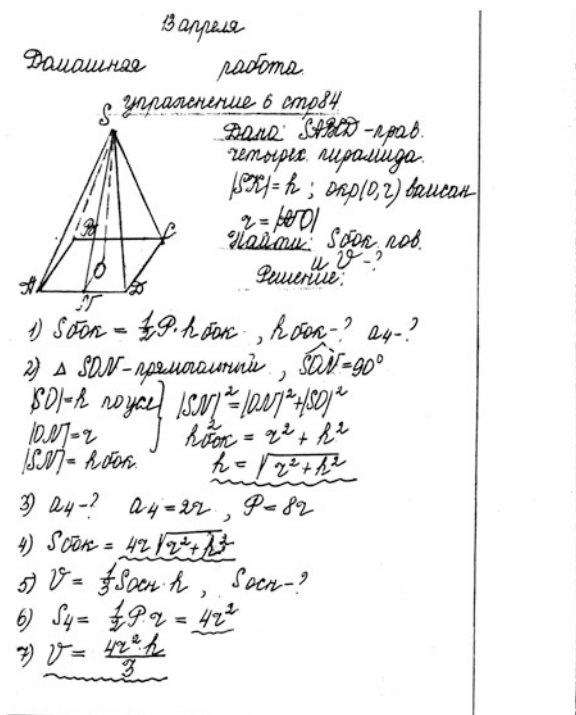 13 апреля
Домашняя работа.
упражнение 6 стр84
Дано: SABCD - прав.
четырех. пирамида.
|SK| = h ; окр(0, r) вписан
r = |NO|
Найти: Sбок. пов.
и V - ?
Решение:
S
B
C
O
A
N
D
1) Sбок = 1/2 P · hбок , hбок - ? a4 - ?
2) △ SON - прямоугольный , SON = 90°
|SO| = h по усл
|ON| = r
|SN| = hбок.
|SN|² = |ON|² + |SO|²
h²бок = r² + h²
h = √r² + h²
3) a4 - ? a4 = 2r , P = 8r
4) Sбок = 4r √r² + h²
5) V = 1/3 Sосн · h , Sосн - ?
6) S4 = 1/2 P · r = 4r²
7) V = 4r² · h / 3